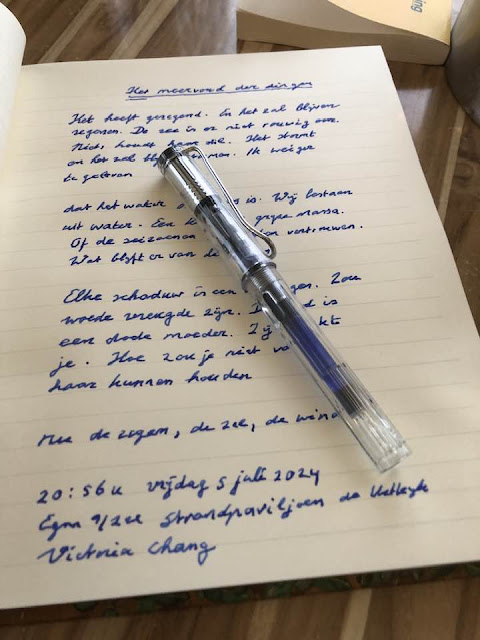 ing
Het meervoud der dingen
Het heeft geregend. En het zal blijven
regenen. De zee is er niet rouwig om.
Niets houdt haar stil. Het stormt
en het zal st men. Ik weiger
te geloven
dat het water is. Wij bestaan
uit water. Een grijze massa.
Of de seizoenen vertrouwen.
Wat blijft er van de
Elke schaduw is een gen. Zou
woede vreugde zijn. d is
een dode moeder. Zij kt
je. Hoe zou je niet va
haar kunnen houden
Mee de regen, de zee, de wind
20:56u vrijdag 5 juli 2024
Egm a/zee Strandpaviljoen de
Victoria Chang